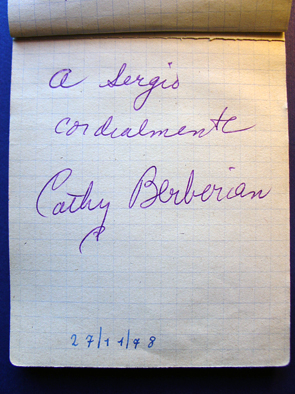 a Sergio
cordialmente
Cathy Berberian
27/11/78